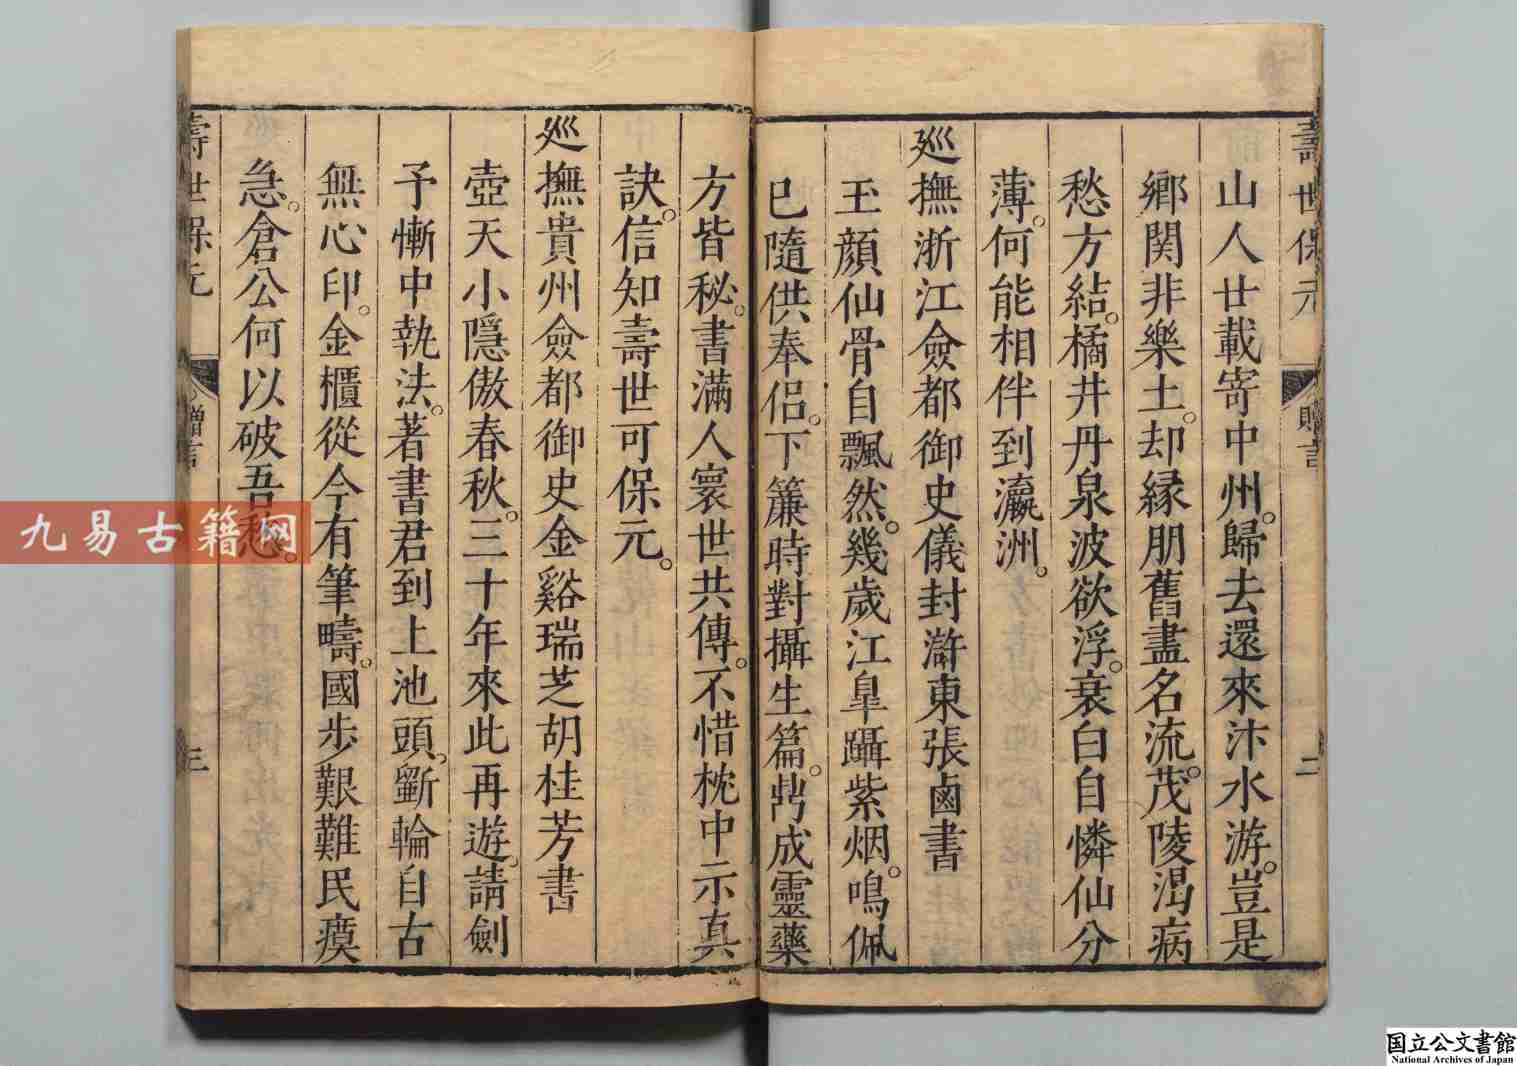 壽世保元
贈言
二
山人廿載寄中州。歸去還來汴水游。豈是
鄉関非樂土。却縁朋舊盡名流。茂陵渴病
愁方結。橘井丹泉波欲浮。衰白自憐仙分
薄。何能相伴到瀛洲。
廵撫浙江僉都御史儀封滸東張鹵書
玉顔仙骨自飄然。幾歲江皐躡紫烟。鳴佩
已隨供奉侣。下簾時對攝生篇。鼎成靈藥
方皆秘。書滿人寰世共傳。不惜枕中示真
訣。信知壽世可保元。
廵撫貴州僉都御史金谿瑞芝胡桂芳書
壺天小隱傲春秋。三十年來此再遊。請劍
予慚中執法。著書君到上池頭。斵輪自古
無心印。金櫃從今有筆疇。國步艱難民瘼
急。倉公何以破吾愁。
壽世保元
贈言
三
九易古籍网
国立公文書館
National Archives of Japan